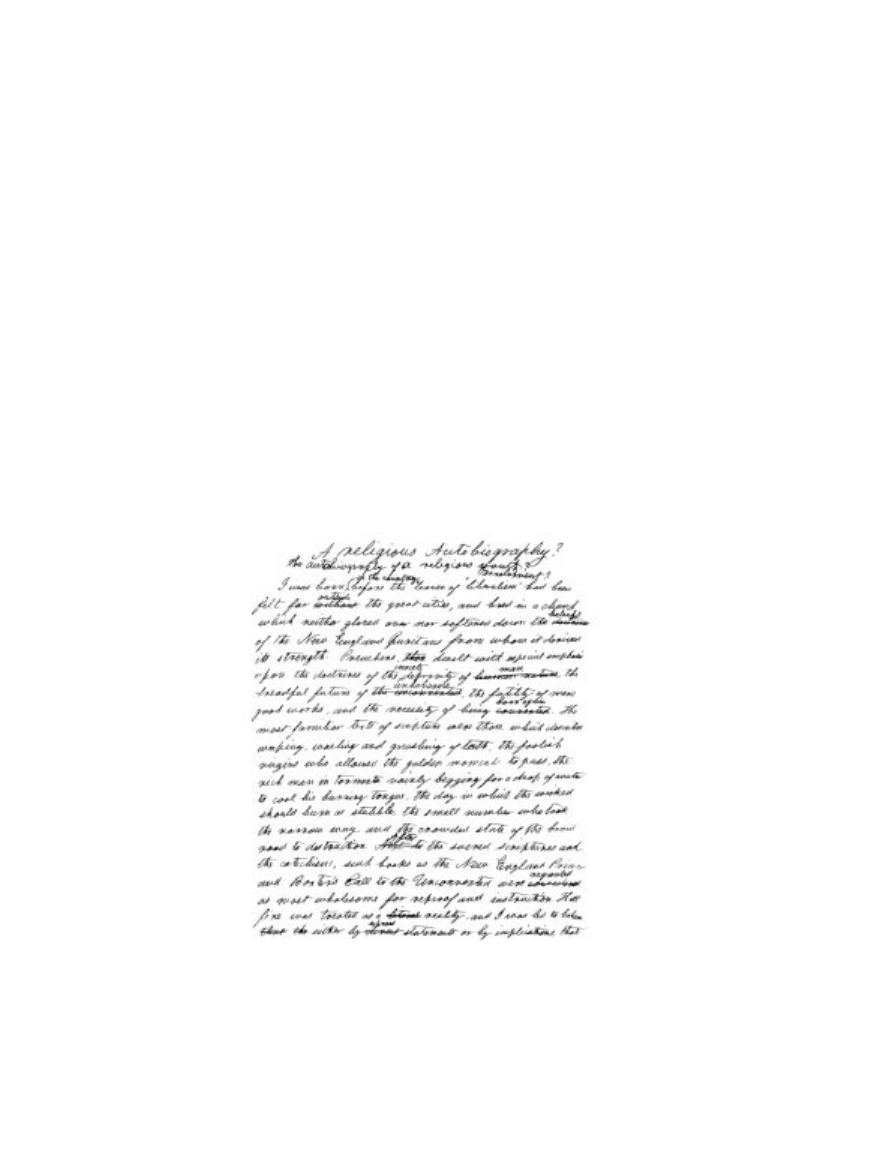 A religious Autobiography?
the autobiography of a religious
in the country
I was born, before the leaven of 'liberalism' had been
outside
felt far without the great cities, and bred in a church
which neither glozed over nor softened down the
beliefs
of the New England Puritans from whom it derived
its strength. Preachers then dwelt with special emphasis
innate man
upon the doctrines of the depravity of human nature, the
dreadful future of the unconverted, the futility of mere
born again
good works, and the necessity of being converted. The
most familiar texts of scripture were those which describe
weeping, wailing and gnashing of teeth, the foolish
virgins who allowed the golden moment to pass, the
rich man in torments vainly begging for a drop of water
to cool his burning tongue, the day in which the wicked
should burn as stubble, the small number who took
the narrow way, and the crowded state of the broad
After
road to destruction. Next to the sacred scriptures and
the catechism, such books as the New England Primer
regarded
and Baxter's Call to the Unconverted were
as most wholesome for reproof and instruction. Hell
fire was treated as a literal reality, and I was led to believe
either by statements or by implications that